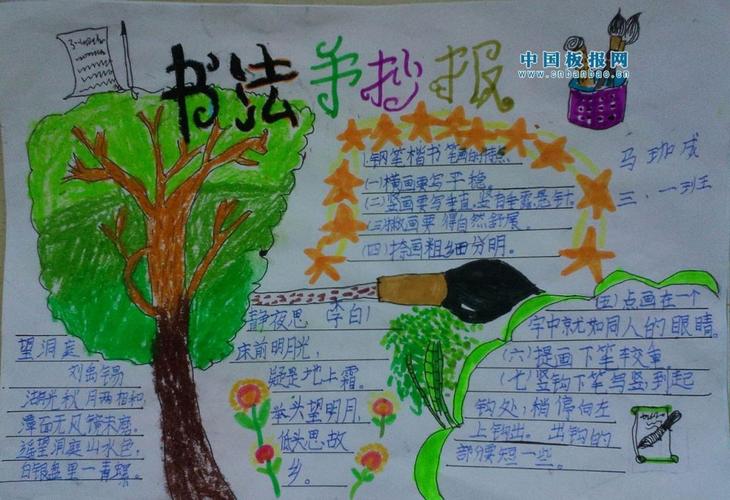 书法手抄报
中国板报网
www.cnbanbao.cn
马珈成
三、一班
1.钢笔楷书笔画的特点
(一)横画要写平稳。
(二)竖画要写垂直,竖有垂露、悬针。
(三)撇画要得自然舒展。
(四)捺画粗细分明。
(五)点画在一个
字中就如同人的眼睛。
(六)提画下笔较重
(七)竖钩下笔写竖,到起
钩处,稍停向左
上钩出。出钩的
部分要短一些。
静夜思 李白
床前明月光,
疑是地上霜。
举头望明月,
低头思故
乡。
望洞庭
刘禹锡
湖光秋月两相和,
潭面无风镜未磨。
遥望洞庭山水色,
白银盘里一青螺。